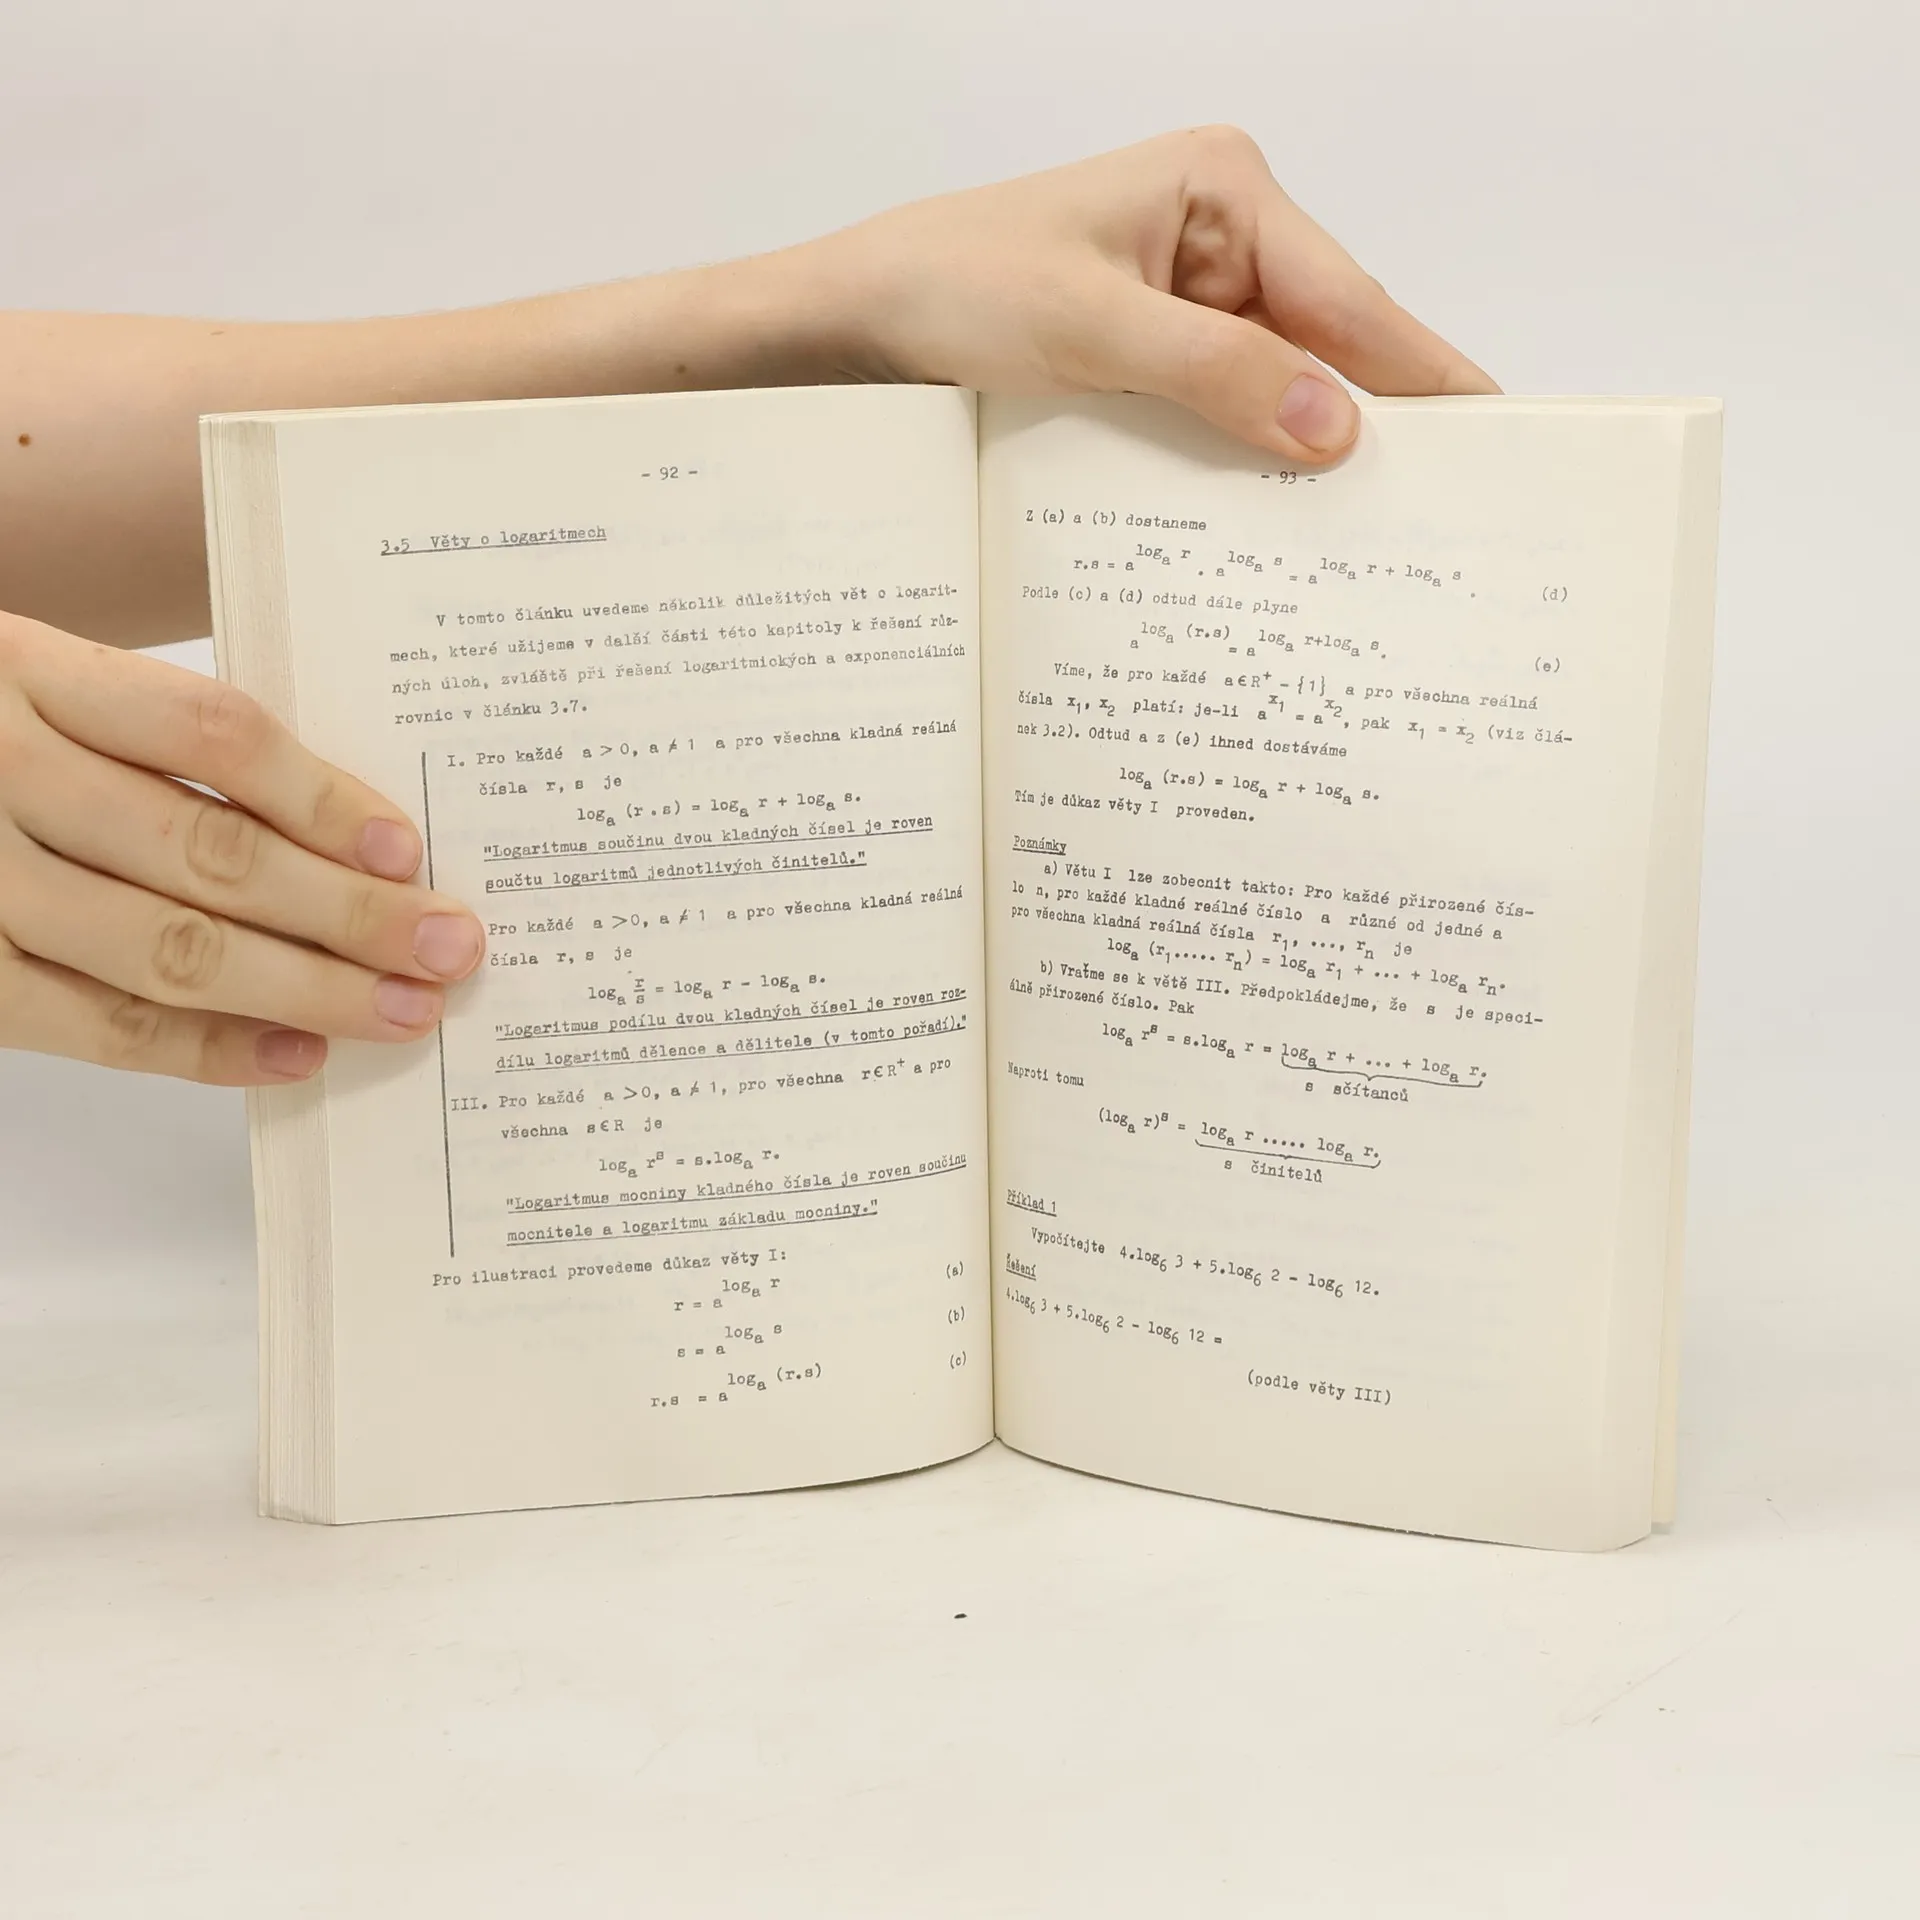 - 92 -
3.5 Věty o logaritmech
V tomto článku uvedeme několik důležitých vět o logarit-
mech, které užijeme v další části této kapitoly k řešení růz-
ných úloh, zvláště při řešení logaritmických a exponenciálních
rovnic v článku 3.7.
I. Pro každé a > 0, a ≠ 1 a pro všechna kladná reálná
čísla r, s je
logₐ (r . s) = logₐ r + logₐ s.
"Logaritmus součinu dvou kladných čísel je roven
součtu logaritmů jednotlivých činitelů."
Pro každé a > 0, a ≠ 1 a pro všechna kladná reálná
čísla r, s je
logₐ r/s = logₐ r - logₐ s.
"Logaritmus podílu dvou kladných čísel je roven roz-
dílu logaritmů dělence a dělitele (v tomto pořadí)."
III. Pro každé a > 0, a ≠ 1, pro všechna r∈R⁺ a pro
všechna s∈R je
logₐ rˢ = s.logₐ r.
"Logaritmus mocniny kladného čísla je roven součinu
mocnitele a logaritmu základu mocniny."
Pro ilustraci provedeme důkaz věty I:
r = a^(logₐ r) (a)
s = a^(logₐ s) (b)
r.s = a^(logₐ (r.s)) (c)
- 93 -
Z (a) a (b) dostaneme
r.s = a^(logₐ r) . a^(logₐ s) = a^(logₐ r + logₐ s) . (d)
Podle (c) a (d) odtud dále plyne
a^(logₐ (r.s)) = a^(logₐ r+logₐ s). (e)
Víme, že pro každé a∈R⁺ - {1} a pro všechna reálná
čísla x₁, x₂ platí: je-li a^(x₁) = a^(x₂), pak x₁ = x₂ (viz člá-
nek 3.2). Odtud a z (e) ihned dostáváme
logₐ (r.s) = logₐ r + logₐ s.
Tím je důkaz věty I proveden.
Poznámky
a) Větu I lze zobecnit takto: Pro každé přirozené čís-
lo n, pro každé kladné reálné číslo a různé od jedné a
pro všechna kladná reálná čísla r₁, ..., rₙ je
logₐ (r₁..... rₙ) = logₐ r₁ + ... + logₐ rₙ.
b) Vraťme se k větě III. Předpokládejme, že s je speci-
álně přirozené číslo. Pak
logₐ rˢ = s.logₐ r = logₐ r + ... + logₐ r.
s sčítanců
Naproti tomu
(logₐ r)ˢ = logₐ r ..... logₐ r.
s činitelů
Příklad 1
Vypočítejte 4.log₆ 3 + 5.log₆ 2 - log₆ 12.
Řešení
4.log₆ 3 + 5.log₆ 2 - log₆ 12 =
(podle věty III)